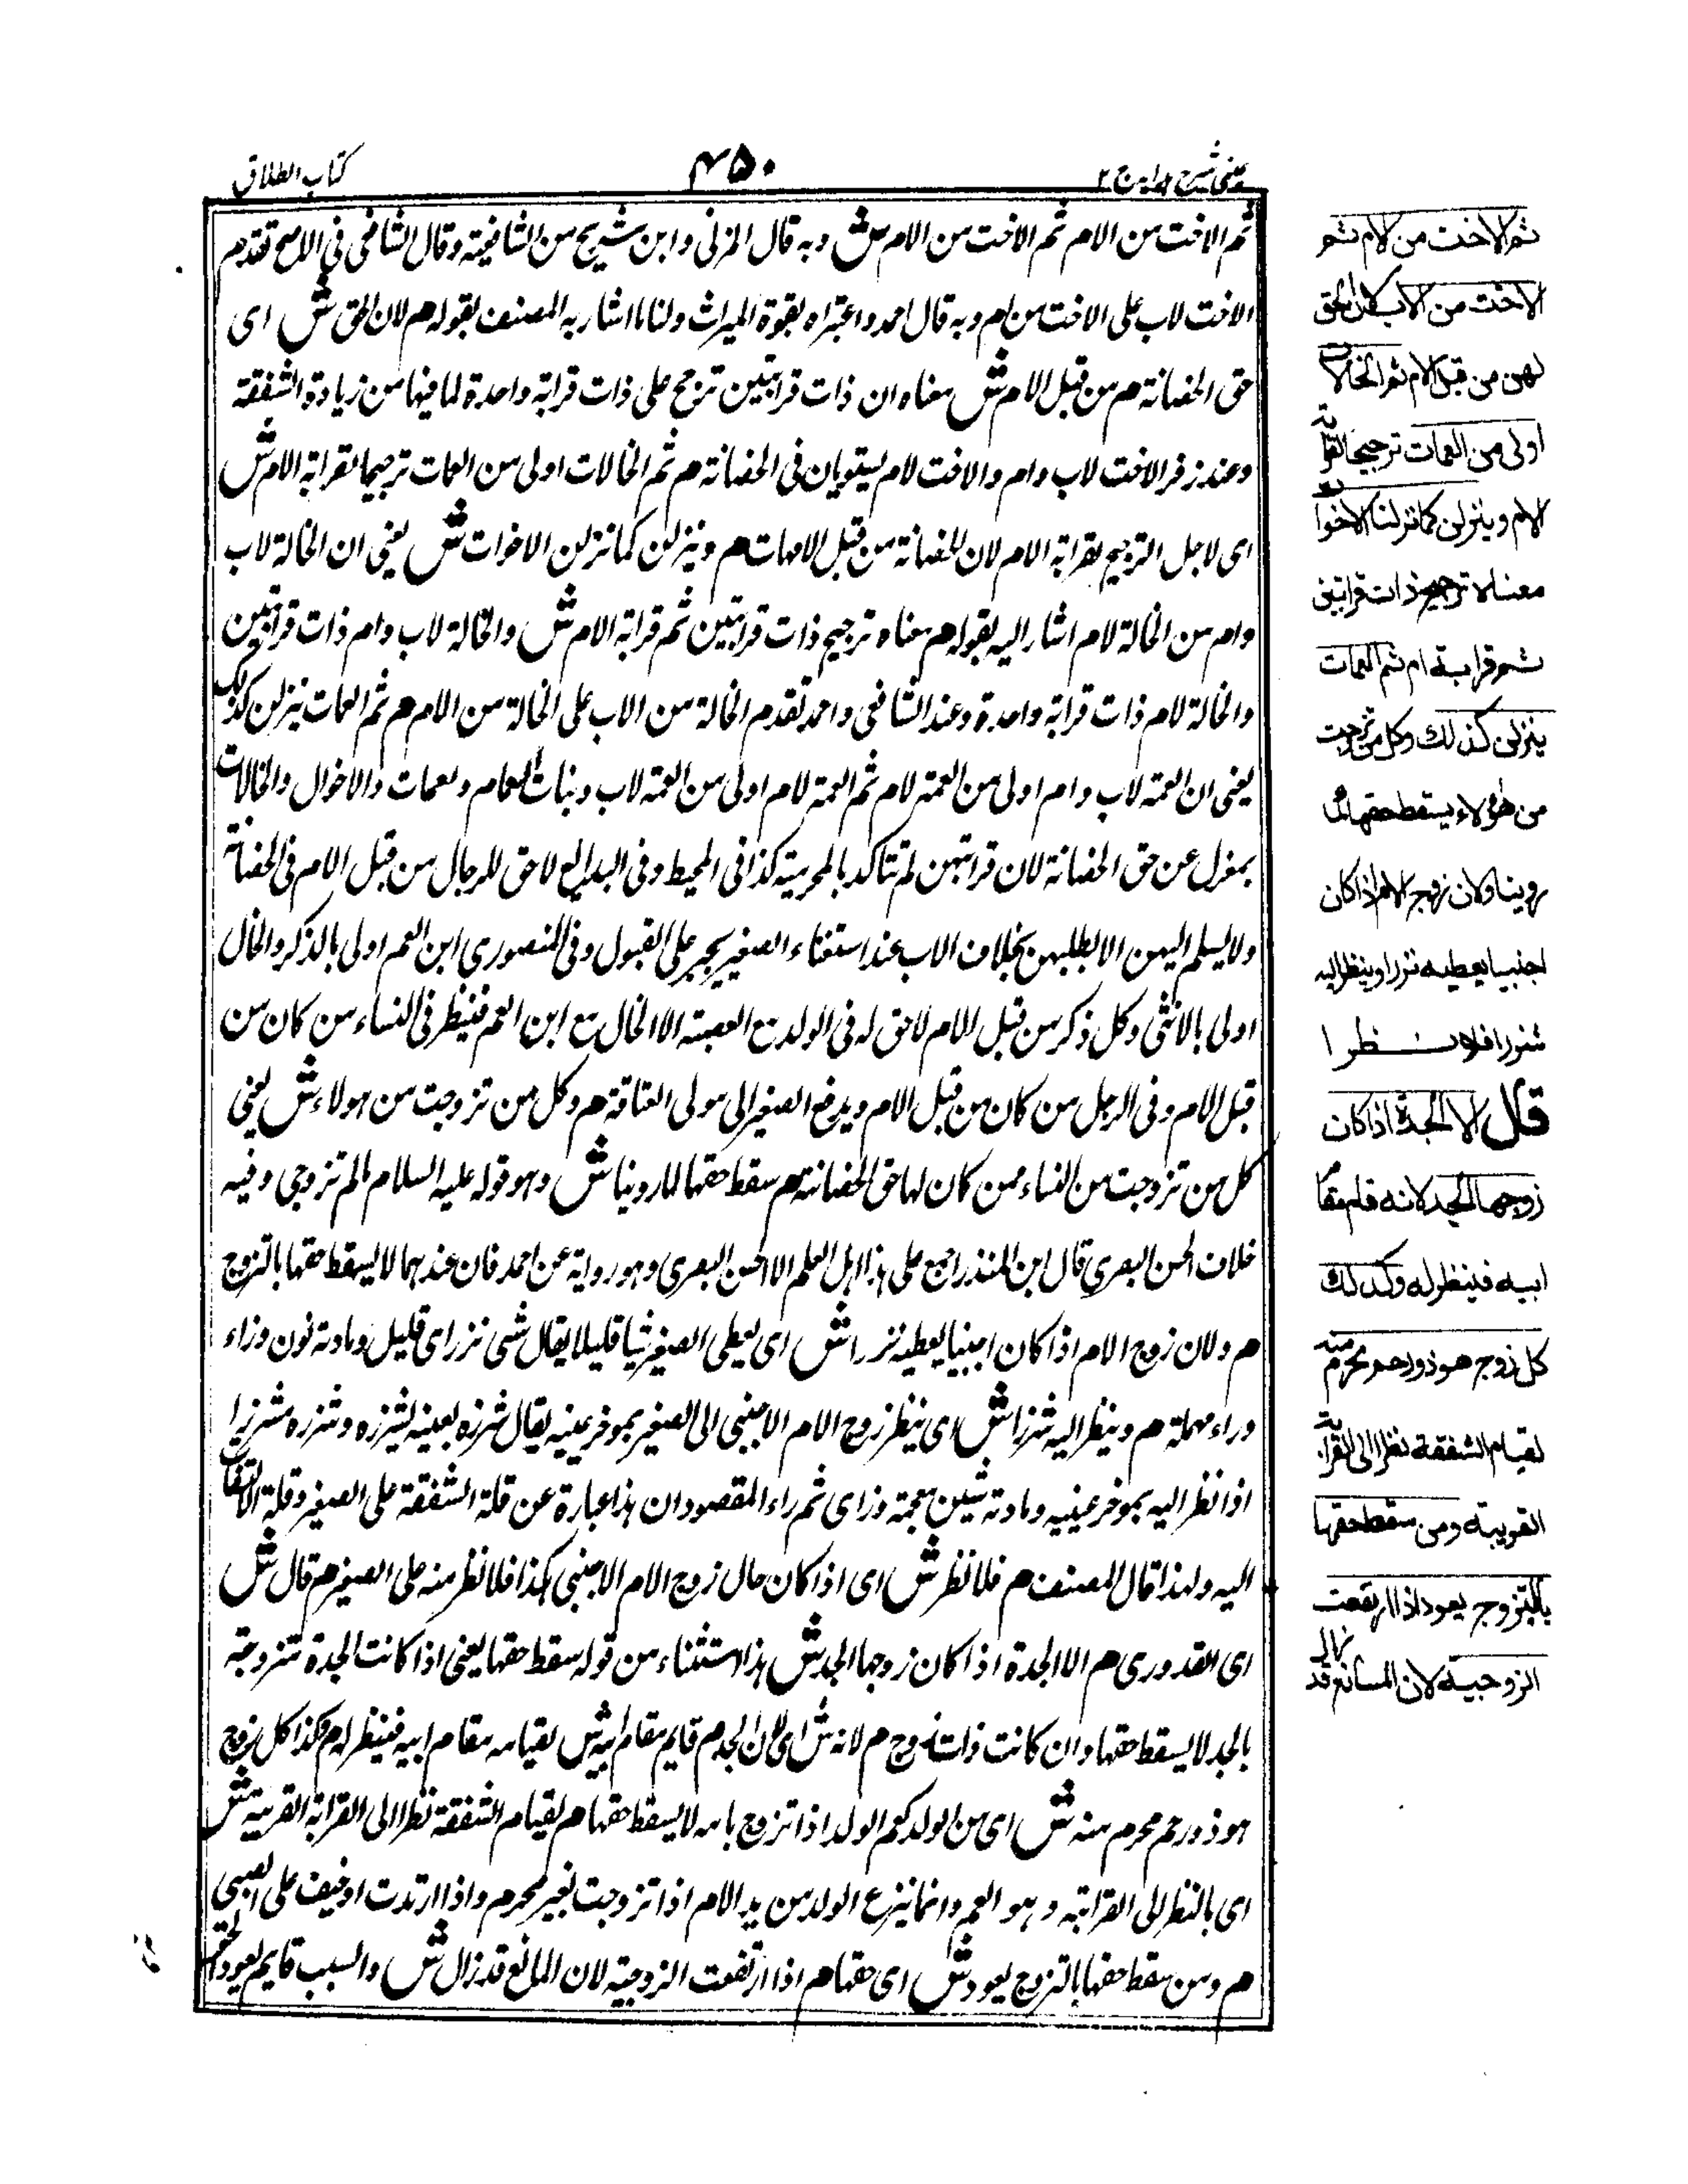 عينى شرح هدايہ ج ٢
۴۵۰
كتاب الطلاق
ثم الاخت من الام ثم الاخت من الام ش وبه قال المزنى وابن شريح من الشافعية وقال الشافعى فى الاصح تقدم
الاخت لاب على الاخت من ام وبه قال احمد واعتبراه بقوة الميراث ولنا ما اشار به المصنف بقوله م لان الحق ش اى
حق الحضانة م من قبل الام ش معناه ان ذات قرابتين ترجح على ذات قرابة واحدة لما فيها من زيادة الشفقة
وعند زفر الاخت لاب وام والاخت لام يستويان فى الحضانة م ثم الخالات اولى من العمات ترجيحا لقرابة الام ش
اى لاجل الترجيح بقرابة الام لان الحضانة من قبل الامهات م وينزلن كما نزلن الاخوات ش يعنى ان الخالة لاب
وام من الخالة لام اشار اليه بقوله م معناه ترجيح ذات قرابتين ثم قرابة الام ش والخالة لاب وام ذات قرابتين
والخالة لام ذات قرابة واحدة وعند الشافعى واحمد تقدم الخالة من الاب على الخالة من الام م ثم العمات ينزلن كذلك
يعنى ان العمة لاب وام اولى من العمة لام ثم العمة لام اولى من العمة لاب وبنات الاعمام والعمات والاخوال والخالات
بمعزل عن حق الحضانة لان قرابتهن لم تتاكد بالمحرمية كذا فى المحيط وفى البدايع لا حق للرجال من قبل الام فى الحضانة
ولا يسلم اليهن الا بطلبهن بخلاف الاب عند استغناء الصغير يجبر على القبول وفى المنصورى ابن العم اولى بالذكر والخال
اولى بالانثى وكل ذكر من قبل الام لا حق له فى الولد مع العصبة الا الخال مع ابن العم فينظر فى النساء من كان من
قبل الام وفى الرجل من كان من قبل الام ويدفع الصغير الى مولى العتاقة م وكل من تزوجت من هولاء ش يعنى
كل من تزوجت من النساء ممن كان لها حق الحضانة م سقط حقها لما روينا ش وهو قوله عليه السلام ما لم تزوجى وفيه
خلاف الحسن البصرى قال ابن المنذر اجمع على هذا اهل العلم الا الحسن البصرى وهو رواية عن احمد فان عندهما لا يسقط حقها بالتزوج
م ولان زوج الام اذا كان اجنبيا يعطيه نزرا ش اى يعطى الصغير شيا قليلا يقال شى نزر اى قليل ومادته نون وزاء
وراء مهملة م وينظر اليه شزرا ش اى ينظر زوج الام الاجنبى الى الصغير بموخر عينيه يقال شزره بعينه يشزره وشزره مشزرا
اذا نظر اليه بموخر عينيه ومادته شين معجمة وزاى ثم راء المقصود ان هذا عبارة عن قلة الشفقة على الصغير وقلة الالتفات
اليه ولهذا قال المصنف م فلا نظر ش اى اذا كان حال زوج الام الاجنبى هكذا فلا نظر منه على الصغير م قال ش
اى القدورى م الا الجدة اذا كان زوجها الجد ش هذا استثناء من قوله سقط حقها يعنى اذا كانت الجدة متزوجة
بالجد لا يسقط حقها وان كانت ذات زوج م لانه ش اى لان الجد م قايم مقام ابيه ش لقيامه مقام ابيه فينظر له م وكذا كل زوج
هو ذو رحم محرم منه ش اى من الولد كعم الولد اذا تزوج بامه لا يسقط حقها م لقيام الشفقة نظرا الى القرابة القريبة ش
اى بالنظر الى القرابة وهو العم وانما ينزع الولد من يد الام اذا تزوجت بغير محرم واذا ارتدت او خيف على الصبى
م ومن سقط حقها بالتزوج يعود ش اى حقها م اذا ارتفعت الزوجية لان المانع قد زال ش والسبب قايم يعود الحق
ثم الاخت من الام ثم
الاخت من الاب لان الحق
لهن من قبل الام ثم الخالات
اولى من العمات ترجيحا لقرابة
الام وينزلن كما نزلنا الاخوات
معناه ترجيح ذات قرابتين
ثم قرابة ام ثم العمات
ينزلن كذلك وكل من تزوجت
من هؤلاء يسقط حقها لما
روينا ولان زوج الام اذا كان
اجنبيا يعطيه نزرا وينظر اليه
شزرا فلا نظرا
قال الا الجدة اذا كان
زوجها الجد لانه قام مقام
ابيه فينظر له وكذلك
كل زوج هو ذو رحم محرم منه
لقيام الشفقة نظرا الى القرابة
القريبة ومن سقط حقها
بالتزوج يعود اذا ارتفعت
الزوجية لان المانع قد زال